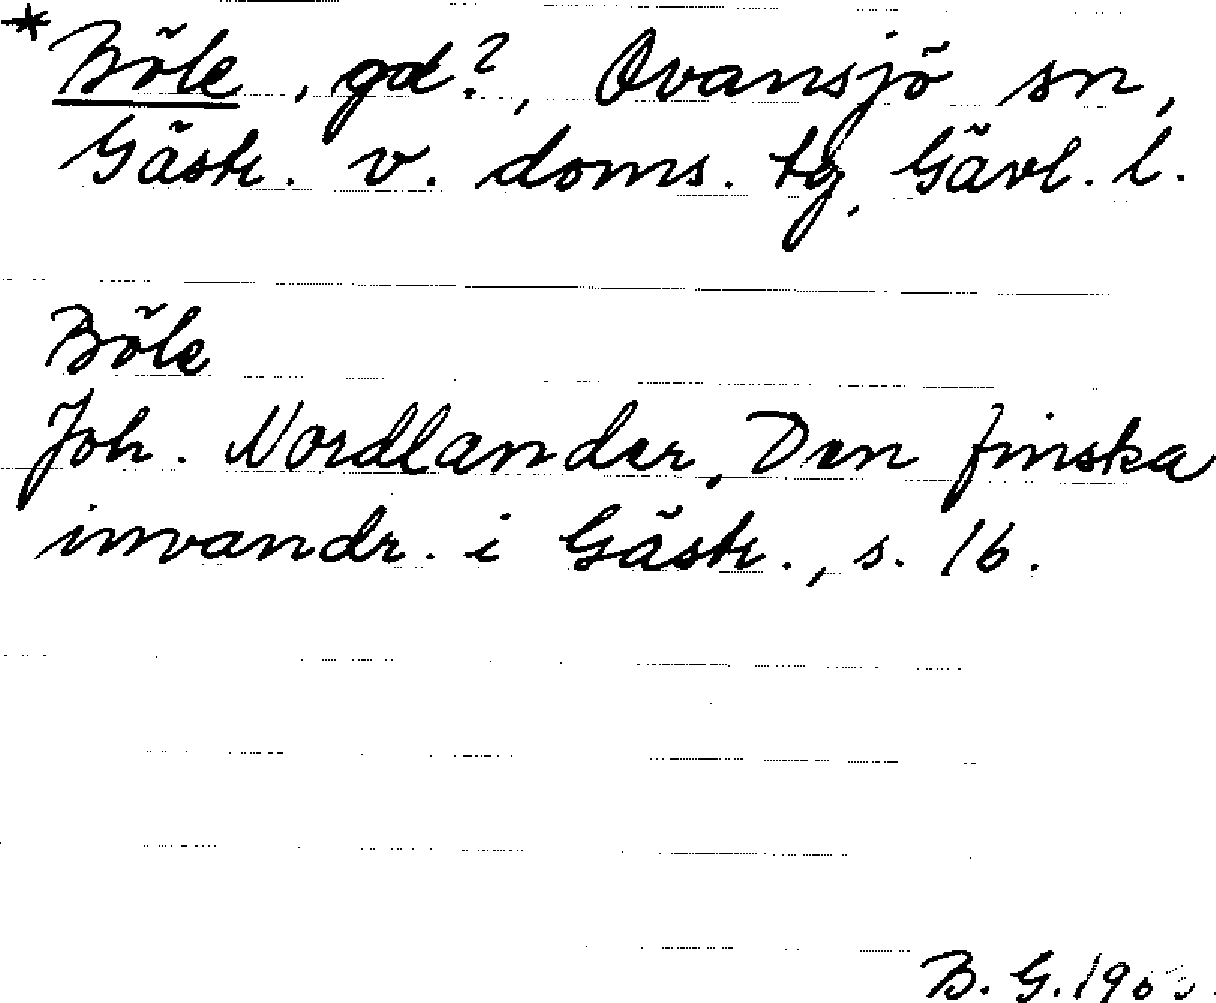 *Böle, gd?, Ovansjö sn,
Gästr. v. doms. tg, Gävl. l.
Böle
Joh. Nordlander, Den finska
invandr. i Gästr., s. 16.
B. G.